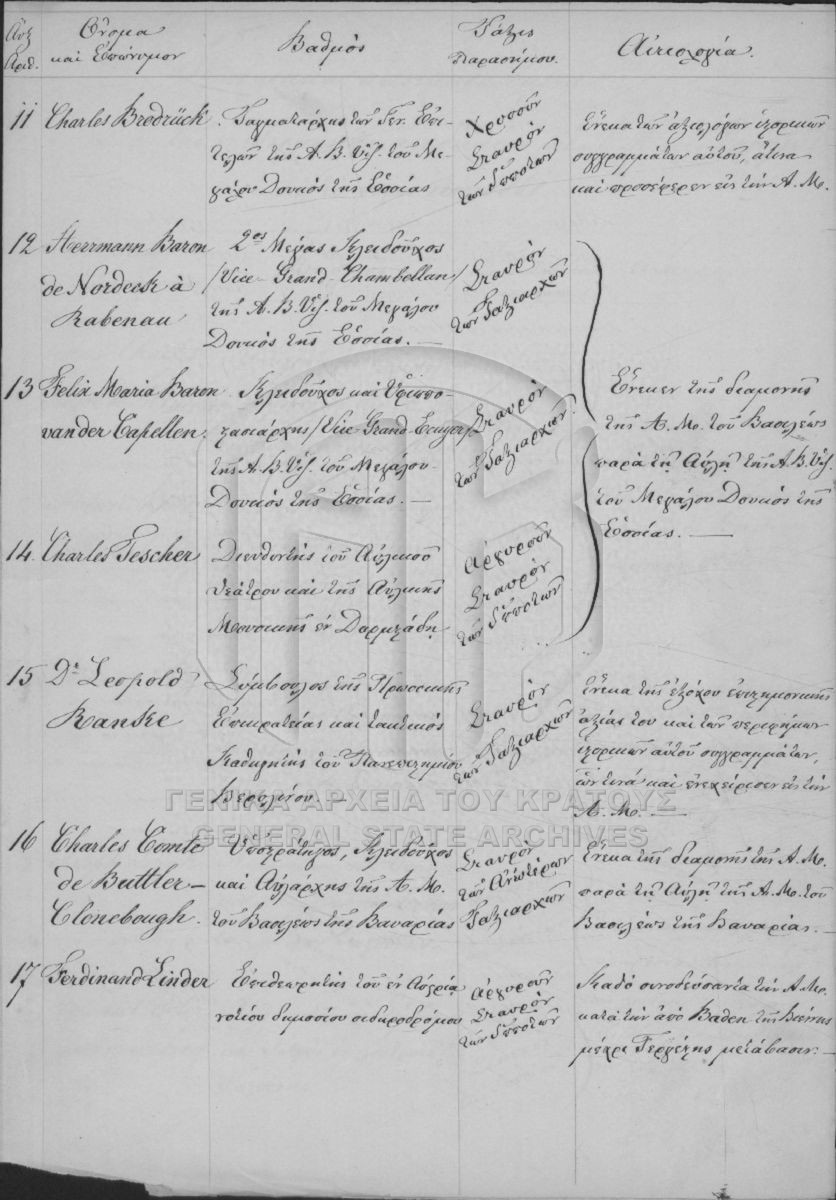 Αὔξ. Ἀριθ.
Ὄνομα
καὶ Ἐπώνυμον
Βαθμός
Τάξις
Παρασήμου.
Αἰτιολογία.
11 Charles Brodrück
Ταγματάρχης τῶν Γεν. Ἐπι-
τελῶν τῆς Α. Β. Ὑψ. τοῦ Με-
γάλου Δουκὸς τῆς Ἑσσίας
Χρυσοῦν
Σταυρὸν
τῶν Ἱπποτῶν
Ἕνεκα τῶν ἀξιολόγων ἱστορικῶν
συγγραμμάτων αὐτοῦ, ἅτινα
καὶ προσέφερεν εἰς τὴν Α. Μ.
12 Herrmann Baron
de Nordeck à
Rabenau
2ος Μέγας Κλειδοῦχος
/Vice-Grand-Chambellan/
τῆς Α. Β. Ὑψ. τοῦ Μεγάλου
Δουκὸς τῆς Ἑσσίας. —
Σταυρὸν
τῶν Ταξιαρχῶν
13 Felix Maria Baron
van der Capellen.
Κλειδοῦχος καὶ Ὑφιππο-
στασιάρχης /Vice-Grand-Ecuyer/
τῆς Α. Β. Ὑψ. τοῦ Μεγάλου
Δουκὸς τῆς Ἑσσίας. —
Σταυρὸν
τῶν Ταξιαρχῶν.
Ἕνεκεν τῆς διαμονῆς
τῆς Α. Μ. τοῦ Βασιλέως
παρὰ τῇ Αὐλῇ τῆς Α. Β. Ὑψ.
τοῦ Μεγάλου Δουκὸς τῆς
Ἑσσίας. —
14. Charles Tescher
Διευθυντὴς τοῦ Αὐλικοῦ
θεάτρου καὶ τῆς Αὐλικῆς
Μουσικῆς ἐν Δαρμστάδῃ
Ἀργυροῦν
Σταυρὸν
τῶν Ἱπποτῶν
15 Dr. Leopold
Ranke
Σύμβουλος τῆς Πρωσσικῆς
Ἐπικρατείας καὶ τακτικὸς
Καθηγητὴς τοῦ Πανεπιστημίου
Βερολίνου. —
Σταυρὸν
τῶν Ταξιαρχῶν
Ἕνεκα τῆς ἐξόχου ἐπιστημονικῆς
ἀξίας του καὶ τῶν περιφήμων
ἱστορικῶν αὐτοῦ συγγραμμάτων,
ὧν τινὰ καὶ ἐνεχείρισεν εἰς τὴν
Α. Μ. —
ΓΕΝΙΚΑ ΑΡΧΕΙΑ ΤΟΥ ΚΡΑΤΟΥΣ
GENERAL STATE ARCHIVES
16 Charles Comte
de Buttler-
Clonebough.
Ὑποστράτηγος, Κλειδοῦχος
καὶ Αὐλάρχης τῆς Α. Μ.
τοῦ Βασιλέως τῆς Βαυαρίας
Σταυρὸν
τῶν Ἀνωτέρων
Ταξιαρχῶν
Ἕνεκα τῆς διαμονῆς τῆς Α. Μ.
παρὰ τῇ Αὐλῇ τῆς Α. Μ. τοῦ
Βασιλέως τῆς Βαυαρίας. —
17 Ferdinand Linder
Ἐπιθεωρητὴς τοῦ ἐν Αὐστρίᾳ
νοτίου δημοσίου σιδηροδρόμου
Ἀργυροῦν
Σταυρὸν
τῶν Ἱπποτῶν
Καθὸ συνοδεύσαντα τὴν Α. Μ.
κατὰ τὴν ἀπὸ τῆς Βιέννης
μέχρι Τεργέστης μετάβασιν. —